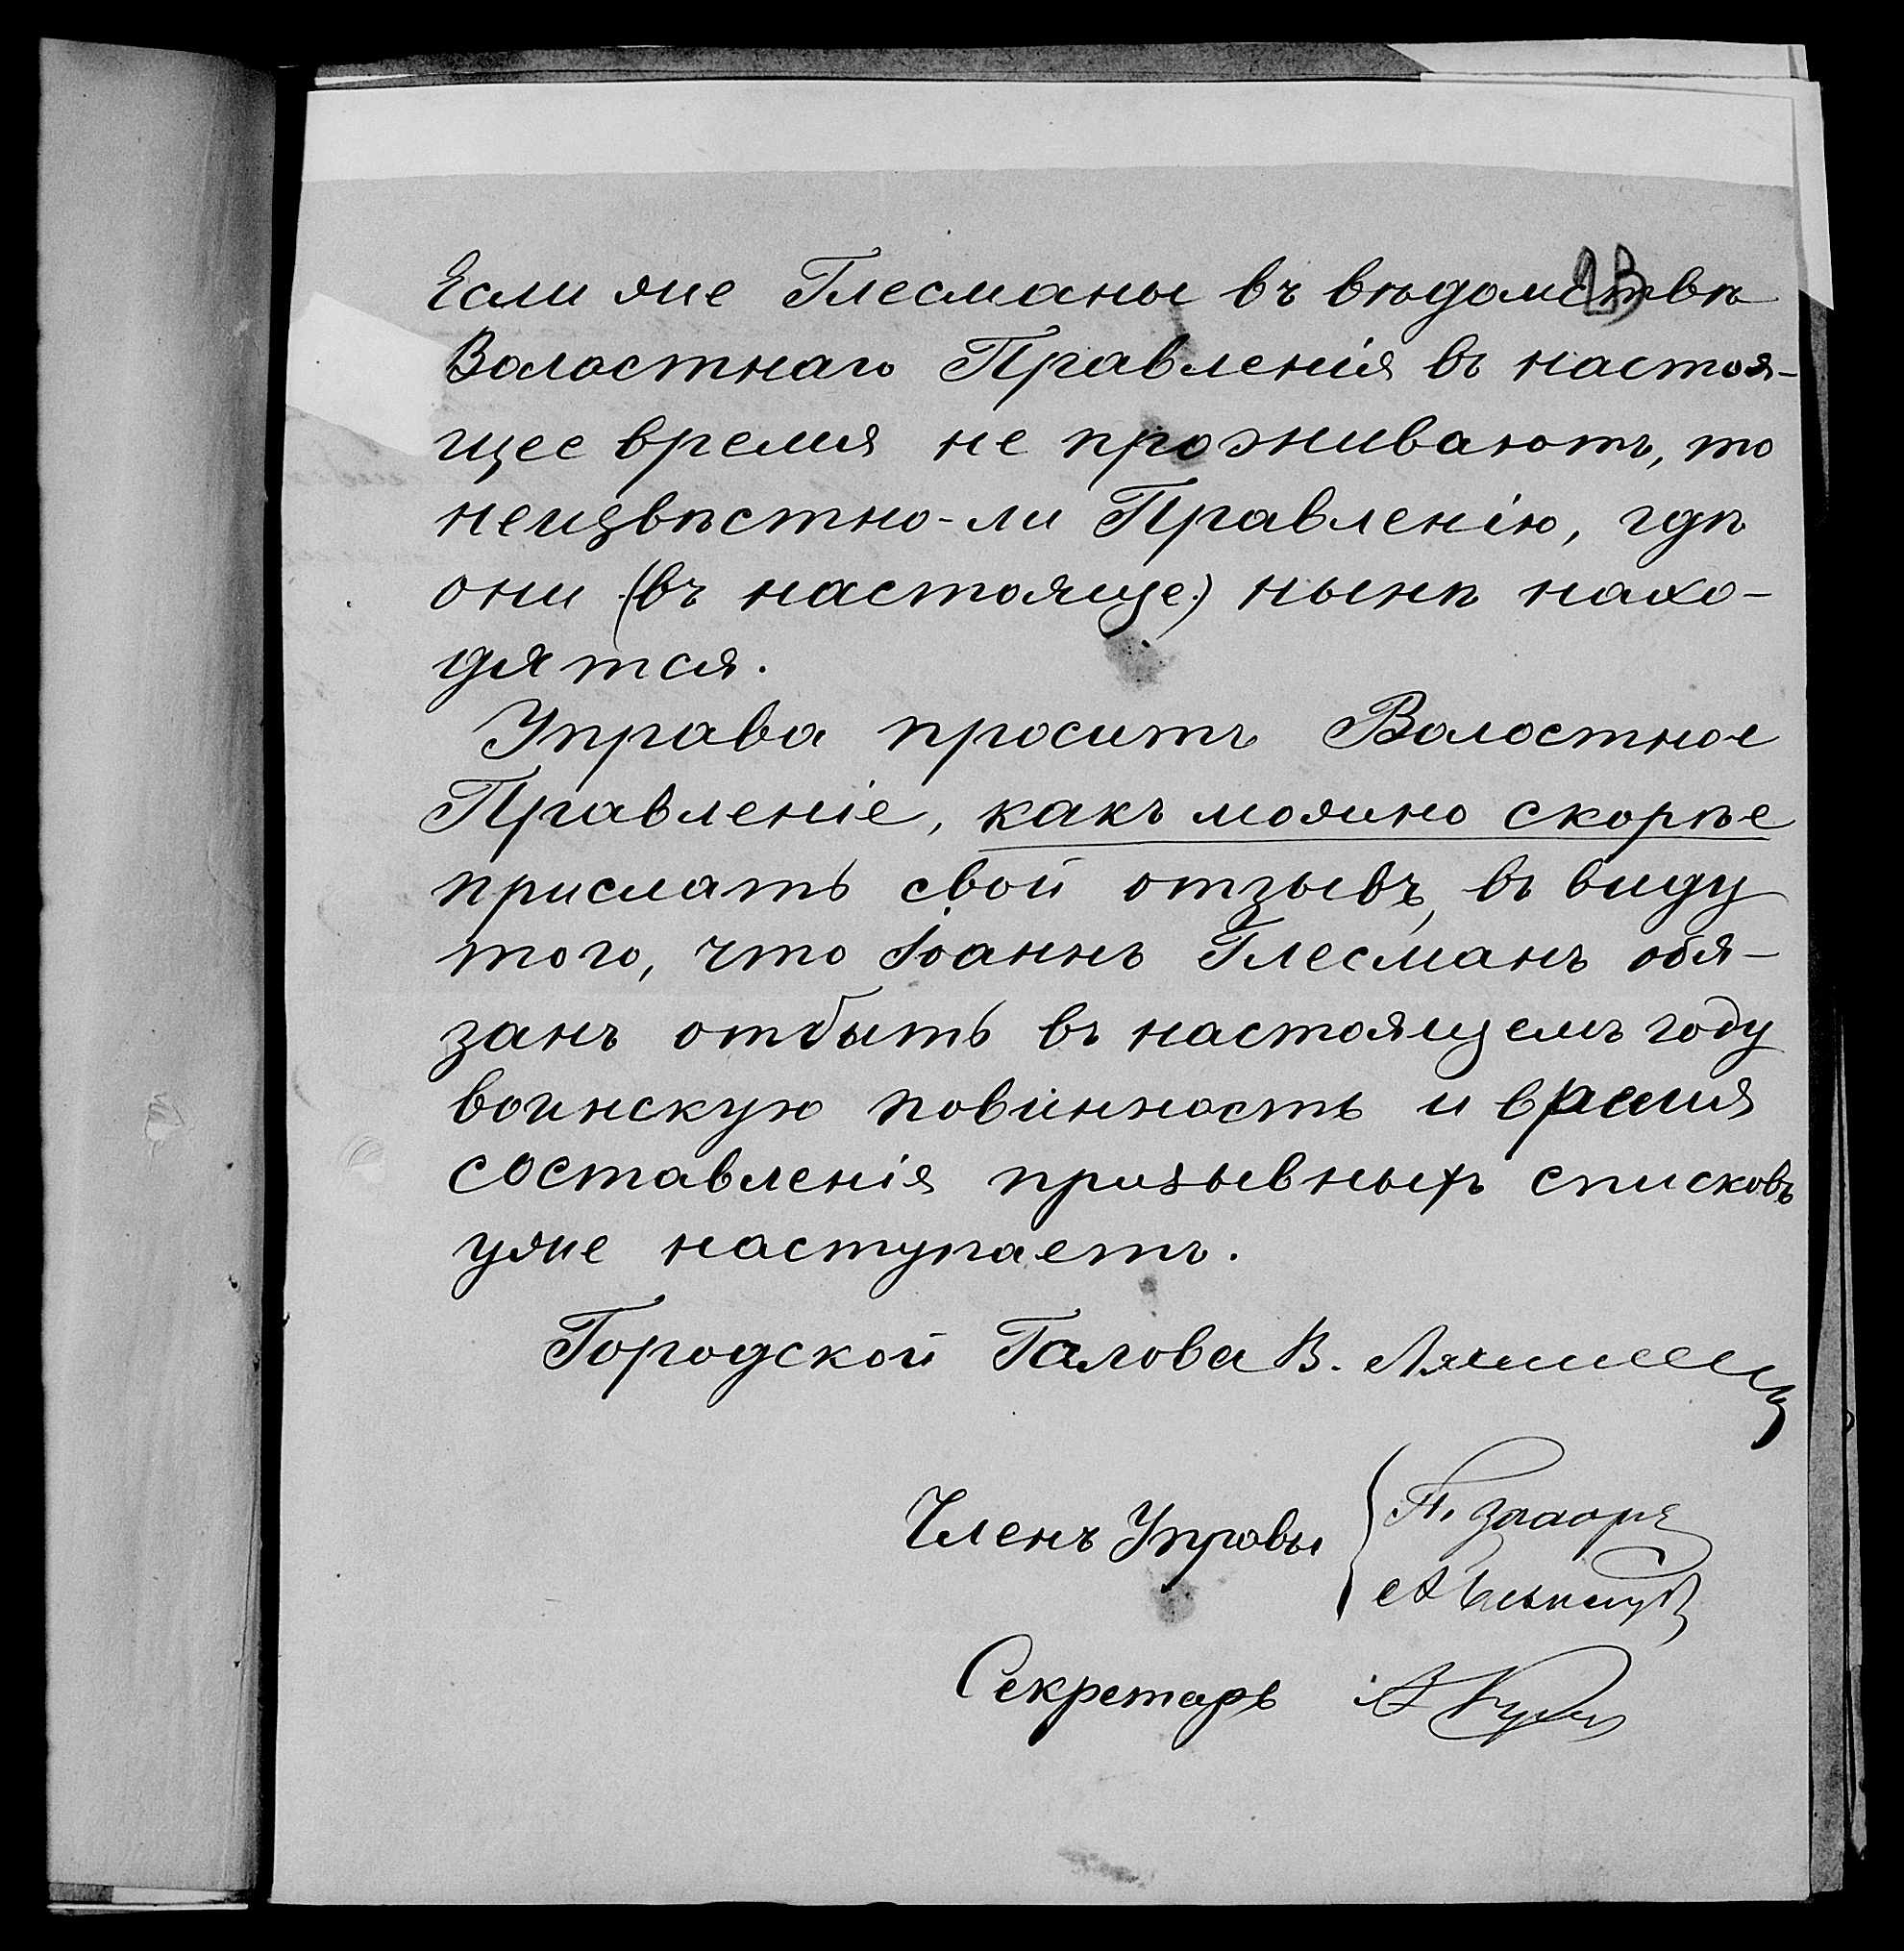 23
Если же Глесманы въ вѣдомствѣ
Волостнаго Правленія въ настоя-
щее время не проживаютъ, то
неизвѣстно-ли Правленію, гдѣ
они (въ настояще.) нынѣ нахо-
дятся.
Управа проситъ Волостное
Правленіе, какъ можно скорѣе
прислать свой отзывъ, въ виду
того, что Іоаннъ Глесманъ обя-
занъ отбыть въ настоящемъ году
воинскую повинность и время
составленія призывныхъ списковъ
уже наступаетъ.
Городской Галова В.
Членъ Управы
Секретарь